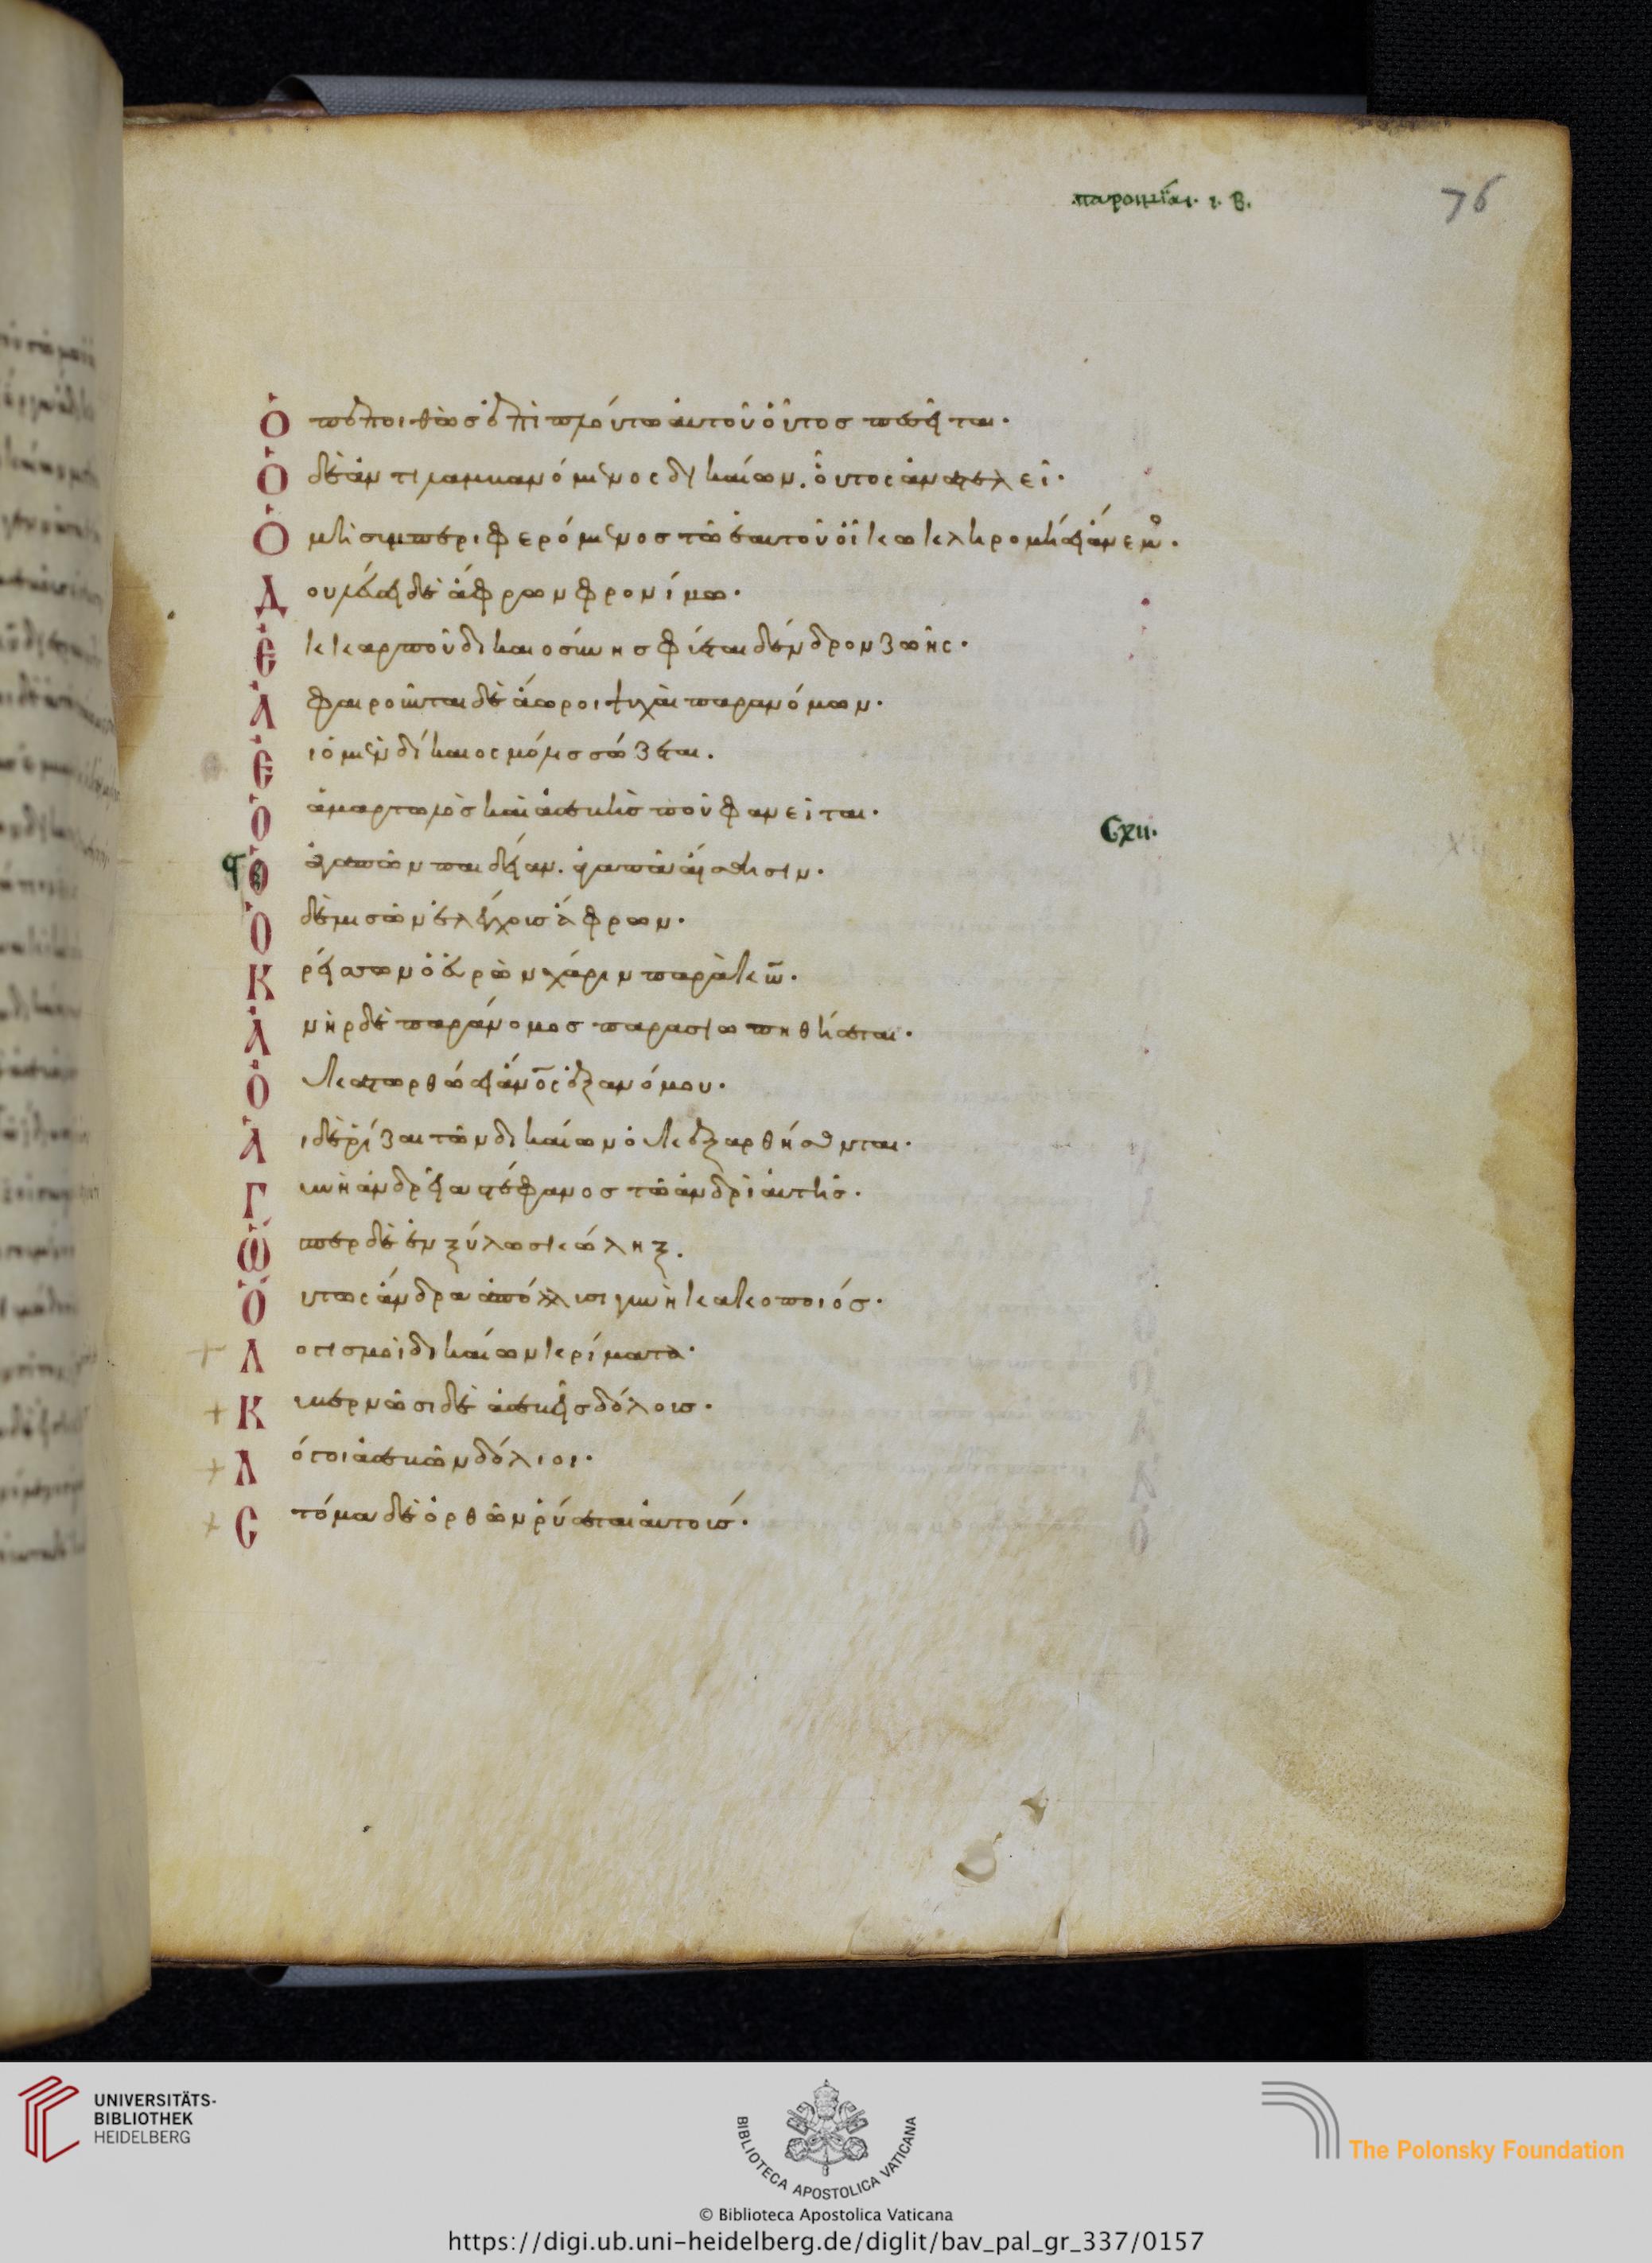 παροιμίαι. ι. β.
76
Ὁ πεποιθὼσ ἐπὶ πλούτω ἀυτοῦ ὁῦτοσ πεσεῖται·
Ὁ δὲ ἀντιλαμβανόμενος δικαίων. ὁῦτος ἀνατελεῖ·
Ὁ μὴ συμπεριφερόμενοσ τῶ ἑαυτοῦ ὀίκω κληρονομήσει ἄνεμον·
Δουλεύσει δὲ ἄφρων φρονίμω·
Ἐκ καρποῦ δικαιοσύνησ φύεται δένδρον ζωῆς·
Ἀφαιροῦνται δὲ ἄωροι ψυχὰι παρανόμων·
Ἐι ὁ μὲν δίκαιος μόλισ σώζεται.
Ὁ ἁμαρτωλὸσ καὶ ἀσεβὴσ ποῦ φανεῖται·
Cxii·
Ὁ ἀγαπῶν παιδείαν. ἀγαπᾶ ἄισθησιν·
Ὁ δὲ μισῶν ἐλέγχουσ ἄφρων·
Κρείσσων ὁ ἑυρὼν χάριν παρὰ κω·
Ἀνὴρ δὲ παράνομοσ παρασιωπηθήσεται·
Ὀυ κατορθώσει ἄνος ἐξ ανόμου·
Ἁι δὲ ῥίζαι τῶν δικαίων ὀυκ ἐξαρθήσονται·
Γυνὴ ἀνδρεία στέφανοσ τῶ ἀνδρὶ ἀυτῆσ·
Ὥσπερ δὲ ἐν ξύλω σκώληξ.
Ὅυτως ἄνδρα ἀπόλλυσι γυνὴ κακοποιόσ·
Λογισμοὶ δικαίων κρίματα·
Κυβερνῶσι δὲ ἀσεβεῖσ δόλουσ·
Λόγοι ἀσεβῶν δόλιοι·
Στόμα δὲ ὀρθῶν ῥύσεται ἀυτούσ·
UNIVERSITÄTS-
BIBLIOTHEK
HEIDELBERG
BIBLIOTECA APOSTOLICA VATICANA
The Polonsky Foundation
© Biblioteca Apostolica Vaticana
https://digi.ub.uni-heidelberg.de/diglit/bav_pal_gr_337/0157